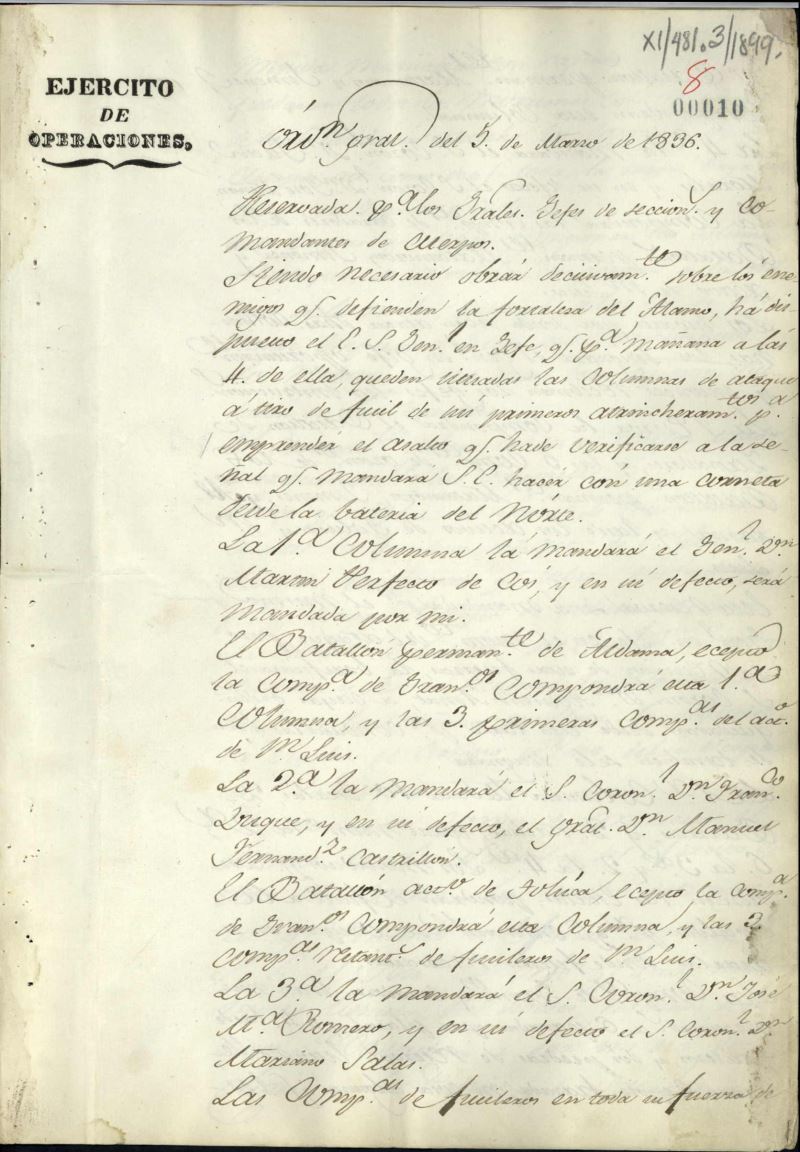 XI/481.3/1899.
8
00010
EJERCITO
DE
OPERACIONES.
Órdⁿ. gral. del 5. de Marzo de 1836.
Reservada. pᵃ. los Grales. Gefes de seccionˢ. y Co-
mandantes de Cuerpos.
Siendo necesario obrár decisivamᵗᵉ. sobre los ene-
migos qͤ. defienden la fortaleza del Álamo, há dis-
puesto el E. S. Genˡ. en Gefe, qͤ. pᵃ. mañana a las
4. de ella, queden situadas las Columnas de ataque
á tiro de fusil de sus primeros atrincheramᵗᵒˢ. pᵃ.
emprendér el asalto qͤ. hade verificarse a la se-
ñal qͤ. mandará S. E. hacér cón una corneta
desde la bateria del Nórte.
La 1.ᵃ Columna lá mandará el Genˡ. Dⁿ.
Martin Perfecto de Cós, y en su defecto, será
mandada por mi.
El Batallón permanᵗᵉ. de Aldama, ecepto
la Compᵃ. de Granᵒˢ. Compondrá esta 1.ᵃ
Columna, y las 3. primeras Compᵃˢ. del actᵒ.
de Sⁿ. Luis.
La 2.ᵃ la Mandará el S. Coronˡ. Dⁿ. Franᶜᵒ.
Duque, y en su defecto, el Gral. Dⁿ. Manuel
Fernandᶻ. Castrillón.
El Batallón actᵒ. de Tolúca, ecepto la Compᵃ.
de Granᵒˢ. Compondrá esta Columna, y las 3.
Compᵃˢ. restantˢ. de fusileros de Sⁿ. Luis.
La 3.ᵃ la mandará el S. Coronˡ. Dⁿ. José
Mᵃ. Romero, y en su defecto el S. Coronˡ. Dⁿ.
Mariano Salas.
Las Compᵃˢ. de fusileros en toda su fuerza de